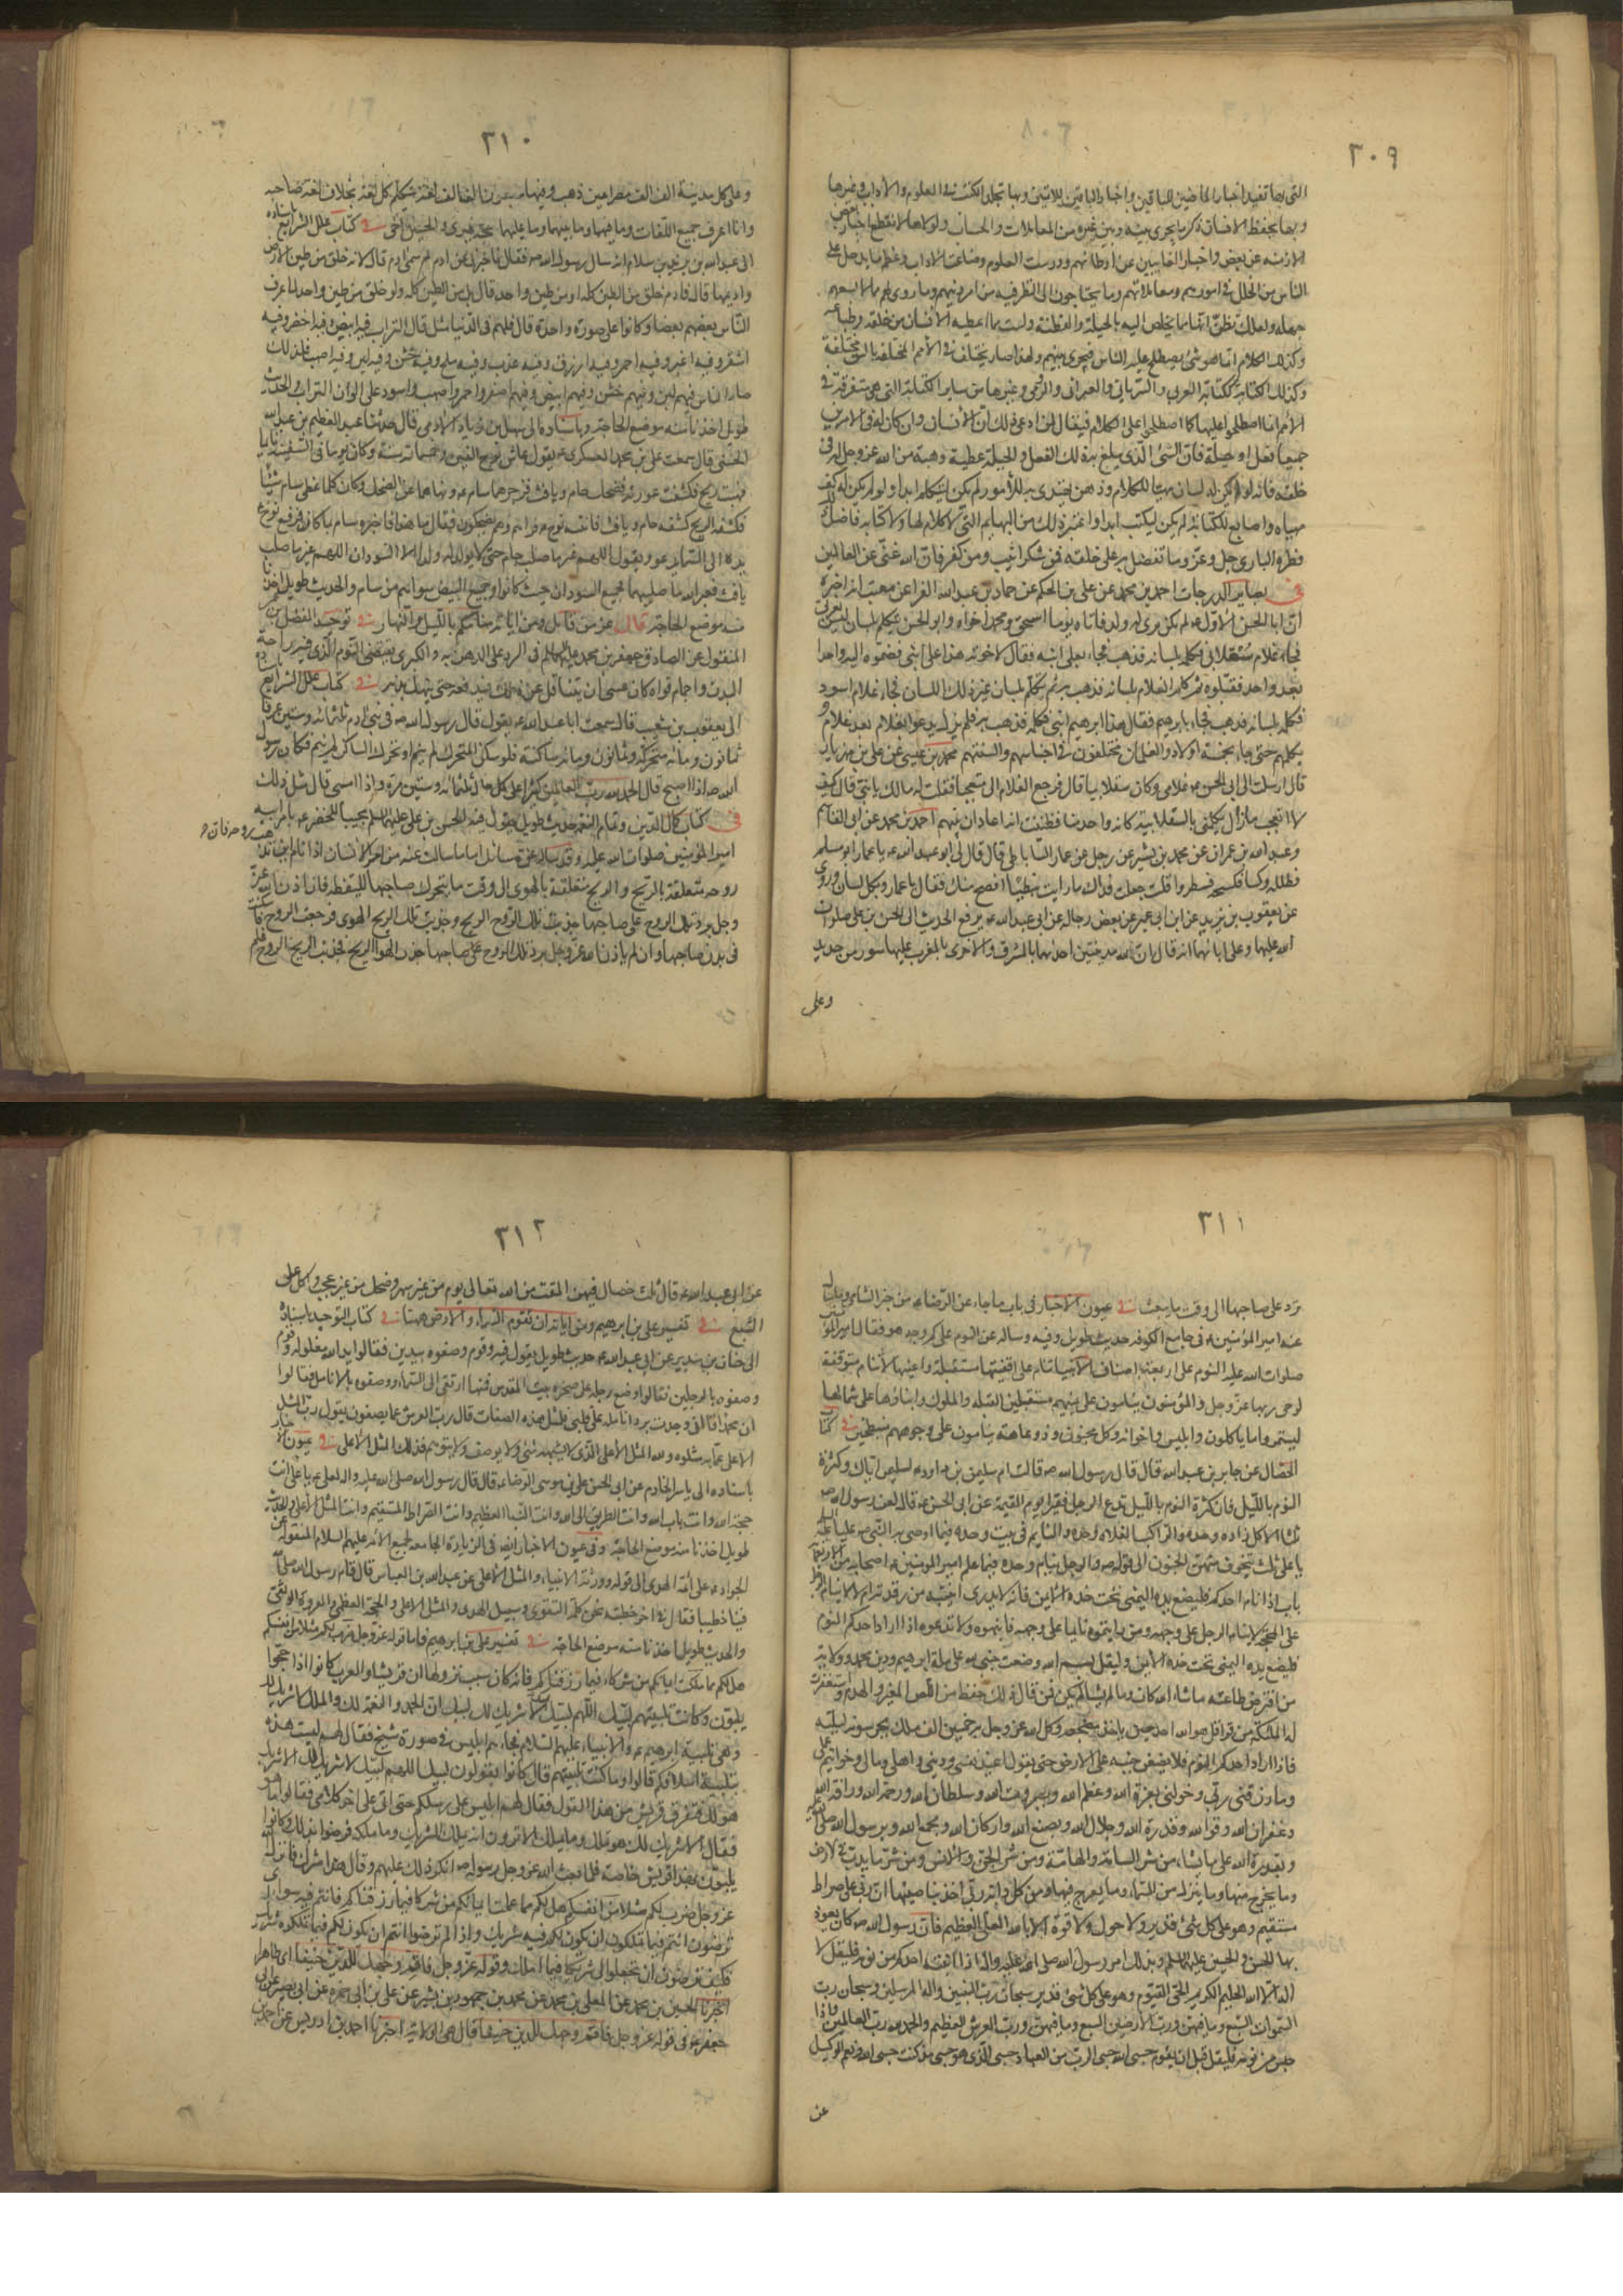 ٣٠٩
التى بها تقيد اخبار الماضين للباقين واخبار الباقين للاتين وبها تخلد الكتب فى العلوم والاداب وغيرها
وبها يحفظ الانسان ذكر ما يجرى بينه وبين غيره من المعاملات والحساب ولولاها لانقطع اخبار بعض
الازمنة عن بعض واخبار الغايبين عن اوطانهم ودرست العلوم وضاعت الاداب وعظم ما يدخل على
الناس من الخلل فى امورهم ومعاملاتهم وما يحتاجون الى النظر فيه من امر دينهم وما روى لهم مما لا يسعهم
جهله ولعلك تظن انها مما يخلص اليه بالحيلة والفطنة وليست مما اعطيه الانسان من خلقه وطباعه
وكذلك الكلام انما هو شىء يصطلح عليه الناس فيجرى بينهم ولهذا صار يختلف فى الامم المختلفة بالسن مختلفة
وكذلك الكتابة ككتابة العربى والسريانى والعبرانى والرومى وغيرها من ساير الكتابة التى هى متفرقة فى
الامم انما اصطلحوا عليها كما اصطلحوا على الكلام فيقال لمن ادعى ذلك ان الانسان وان كان له فى الامرين
جميعا فعل او حيلة فان الشىء الذى يبلغ به ذلك الفعل والحيلة عطية وهبة من الله عز وجل له فى
خلقه فانه لو لم يكن له لسان مهيأ للكلام وذهن يهتدى به للأمور لم يكن ليتكلم ابدا ولو لم يكن له كف
مهياه واصابع للكتابة لم يكن ليكتب ابدا واعتبر ذلك من البهايم التى لا كلام لها ولا كتابة فاصل ذلك
فطرة البارى جل وعز وما تفضل به على خلقه فمن شكر اثيب ومن كفر فان الله غنى عن العالمين
فى بصاير الدرجات احمد بن محمد عن على بن الحكم عن حماد بن عبد الله الفرا عن معتب انه اخبره
ان ابا الحسن الاول ع لم يكن يرى له ولد فأتاه يوما اسحق ومحمد اخواه وابو الحسن يتكلم بلسان ليس بعربى
فجاء غلام سقلابى فكلمه بلسانه فذهب فجاء بعلى ابنه فقال لاخوته هذا على ابنى فضموه اليه واحدا
بعد واحد فقبلوه ثم كلم الغلام بلسانه فذهب به ثم تكلم بلسان غير ذلك اللسان فجاء غلام اسود
فكلمه بلسانه فذهب فجاء بابرهيم فقال هذا ابرهيم ابنى فكلمه فذهب به فلم يزل يدعو بغلام بعد غلام و
يكلمهم حتى جاء بخمسة اولاد والغلمان مختلفون فى اجناسهم والسنتهم محمد بن عيسى عن على بن مهزيار
قال ارسلت الى ابى الحسن ع غلامى وكان سقلابيا قال فرجع الغلام الى متعجبا فقلت له مالك يا بنى قال كيف
لا اتعجب ما زال يكلمنى بالسقلابية كانه واحد منا فظننت انه انما دار بينهم احمد بن محمد عن ابى القاسم
وعبد الله بن عمران عن محمد بن بشير عن رجل عن عمار الساباطى قال قال لى ابو عبد الله ع يا عمار ابو مسلم
فظلله وكسا فكسحه فسطورا قلت جعلت فداك ما رايت نبطيا افصح منك فقال يا عمار وبكل لسان وروى
عن يعقوب بن يزيد عن ابن ابى عمير عن بعض رجاله عن ابى عبد الله ع يرفع الحديث الى الحسن بن على صلوات
الله عليهما وعلى ابائهما انه قال ان لله مدينتين احدهما بالمشرق والاخرى بالمغرب عليهما سور من حديد
وعلى
٣١٠
وعلى كل مدينة الف الف مصراعين ذهب وفيها سبعون الف الف لغة يتكلم كل لغة بخلاف لغة صاحبه
وانا اعرف جميع اللغات وما فيهما وما بينهما وما عليهما حجة غيرى والحسين اخى فى كتاب علل الشرايع باسناده
الى عبد الله بن يزيد بن سلام انه سال رسول الله ص فقال فاخبرنى عن ادم لم سمى ادم قال لانه خلق من طين الارض
واديمها قال فادم خلق من الطين كله او من طين واحد قال بل من الطين كله ولو خلق من طين واحد لما عرف
الناس بعضهم بعضا وكانوا على صورة واحدة قال فلهم فى الدنيا مثل قال التراب فيه ابيض وفيه اخضر وفيه
اشقر وفيه اغبر وفيه احمر وفيه ازرق وفيه عذب وفيه ملح وفيه خشن وفيه لين وفيه اصهب فلذلك
صار الناس فيهم لين وفيهم خشن وفيهم ابيض وفيهم اصفر واحمر واصهب واسود على الوان التراب والحديث
طويل اخذنا منه موضع الحاجة وباسناده الى سهل بن زياد الادمى قال حدثنا عبد العظيم بن عبد الله
الحسنى قال سمعت على بن محمد العسكرى ع يقول عاش نوح الفين وخمسمائة سنة وكان يوما فى السفينة نايما
فهبت ريح فكشفت عورته فضحك حام ويافث فزجرهما سام ع ونهاهما عن الضحك وكان كلما غطى سام شيئا
تكشفه الريح كشفه حام ويافث فانتبه نوح ع فراهم وهم يضحكون فقال ما هذا فاخبره سام بما كان فرفع نوح ع
يده الى السماء يدعو ويقول اللهم غير ما صلب حام حتى لا يولد له ولد الا السودان اللهم غير ما صلب
يافث فغير الله ما صلبهما فجميع السودان حيث كانوا من حام وجميع البيض سواهم من سام والحديث طويل اخذنا
منه موضع الحاجة قال عز من قائل ومن اياته منامكم بالليل والنهار فى توحيد المفضل بن عمر
المنقول عن الصادق جعفر بن محمد عليهما السلم فى الرد على الدهرية والكرى يقتضى النوم الذى فيه راحة
البدن واجمام قواه كان عسى ان يتثاقل عن ذلك فيدفعه حتى ينهك بدنه فى كتاب علل الشرايع باسناده
الى يعقوب بن شعيب قال سمعت ابا عبد الله ع يقول قال رسول الله ص فى بنى ادم ثلثمائة وستين عرقا
ثمانون ومائة متحركة وثمانون ومائة ساكنة فلو سكن المتحرك لم ينم او تحرك الساكن لم ينم فكان رسول
الله ص اذا اصبح قال الحمد لله رب العالمين كثيرا على كل حال ثلثمائة وستين مرة واذا امسى قال مثل ذلك
فى كتاب كمال الدين وتمام النعمة حديث طويل يقول فيه الحسن بن على عليهما السلم مجيبا للخضر ع بامر ابيه
امير المؤمنين صلوات الله عليه وقد ساله عن مسائل اما ما سالت عنه من امر الانسان اذا نام اين تذهب روحه فان
روحه متعلقة بالريح والريح متعلقة بالهوى الى وقت ما يتحرك صاحبها لليقظة فان اذن الله عز
وجل برد تلك الروح على صاحبها جذبت تلك الروح الريح وجذبت تلك الريح الهوى فرجعت الروح فاسكنت
فى بدن صاحبها وان لم ياذن الله عز وجل برد تلك الروح على صاحبها جذب الهوا الريح فجذبت الريح الروح فلم
٣١١
ترد على صاحبها الى وقت ما يبعث فى عيون الاخبار فى باب ما جاء عن الرضا ع من خبر الشامى وما سال
عنه امير المؤمنين ع فى جامع الكوفة حديث طويل وفيه وساله عن النوم على كم وجه هو فقال امير المؤمنين
صلوات الله عليه النوم على اربعة اصناف الانبيا تنام على اقفيتها مستقبلة واعينها لا تنام متوقعة
لوحى ربها عز وجل والمؤمنون ينامون على يمينهم مستقبلين القبلة والملوك وابناؤها على شمالها
ليستمروا ما ياكلون وابليس واخوانه وكل مجنون وذو عاهة ينامون على وجوههم منبطحين فى كتاب
الخصال عن جابر بن عبد الله قال قال رسول الله ص قالت ام سليمن بن داود ع لسليمن اياك وكثرة
النوم بالليل فان كثرة النوم بالليل تدع الرجل فقيرا يوم القيمة عن ابى الحسن ع قال لعن رسول الله ص
ثلثة الاكل زاده وحده والراكب الفلاة وحده والنايم فى بيت وحده فيما اوصى به النبى ص عليا ع
يا على ثلث يتخوف منهن الجنون الى قوله ص والرجل ينام وحده فيما علم امير المؤمنين ع اصحابه من الاربعمائة
باب اذا نام احدكم فليضع يده اليمنى تحت خده الايمن فانه لا يدرى اينتبه من رقدته ام لا لا ينام الرجل
على المحجة لا ينام الرجل على وجهه ومن رايتموه نايما على وجهه فانبهوه ولا تدعوه اذا اراد احدكم النوم
فليضع يده اليمنى تحت خده الايمن وليقل بسم الله وضعت جنبى لله على ملة ابرهيم ودين محمد وولاية
من افترض طاعته ما شاء الله كان وما لم يشأ لم يكن فمن قال ذلك حفظ من اللص المغير والهدم واستغفرت
له الملئكة من قرا قل هو الله احد حين ياخذ مضجعه وكل الله عز وجل به خمسين الف ملك يحرسونه ليلته
فاذا اراد احدكم النوم فلا يضعن جنبه على الارض حتى يقول اعيذ نفسى ودينى واهلى ومالى وخواتيم عملى
وما رزقنى ربى وخولنى بعزة الله وعظمة الله وجبروت الله وسلطان الله ورحمة الله ورافة الله
وغفران الله وقوة الله وقدرة الله وجلال الله وبصنع الله واركان الله وبجمع الله وبرسول الله صلى الله عليه
وبقدرة الله على ما يشاء من شر السامة والهامة ومن شر الجن والانس ومن شر ما يدب فى الارض
وما يخرج منها وما ينزل من السماء وما يعرج فيها ومن كل دابة ربى اخذ بناصيتها ان ربى على صراط
مستقيم وهو على كل شىء قدير ولا حول ولا قوة الا بالله العلى العظيم فان رسول الله ص كان يعوذ
بها الحسن والحسين عليهما السلم وبذلك امر رسول الله صلى الله عليه واله اذا انتبه احدكم من نومه فليقل لا
اله الا الله الحليم الكريم الحى القيوم وهو على كل شىء قدير سبحان رب النبيين واله المرسلين وسبحان رب
السموات السبع وما فيهن ورب الارضين السبع وما فيهن ورب العرش العظيم والحمد لله رب العالمين واذا
جلس من نومه فليقل قبل ان يقوم حسبى الله حسبى الرب من العباد حسبى الذى هو حسبى مذ كنت حسبى الله ونعم الوكيل
عن
٣١٢
عن ابى عبد الله ع قال ثلث خصال فيهن المقت من الله تعالى نوم من غير سهر وضحك من غير عجب واكل على
الشبع فى تفسير على بن ابرهيم ومن اياته ان تقوم السماء والارض ههنا فى كتاب التوحيد باسناده
الى حنان بن سدير عن ابى عبد الله ع حديث طويل يقول فيه وقوم وصفوه بيدين فقالوا يد الله مغلولة وقوم
وصفوه بالرجلين فقالوا وضع رجله على صخرة بيت المقدس فمنها ارتقى الى السماء ووصفوه بالانامل فقالوا
ان محمدا قال انى وجدت برد انامله على قلبى فلمثل هذه الصفات قال رب العرش عما يصفون يقول رب المثل
الاعلى عما به مثلوه ولله المثل الاعلى الذى لا يشبهه شىء ولا يوصف ولا يتوهم فذلك المثل الاعلى فى عيون الاخبار
باسناده الى ياسر الخادم عن ابى الحسن على بن موسى الرضا ع قال قال رسول الله صلى الله عليه واله لعلى ع يا على انت
حجة الله وانت باب الله وانت الطريق الى الله وانت النبأ العظيم وانت الصراط المستقيم وانت المثل الاعلى والحديث
طويل اخذنا منه موضع الحاجة وفى عيون الاخبار ايضا فى الزيارة الجامعة لجميع الائمة عليهم السلام المنقولة عن
الجواد ع على ائمة الهدى الى قوله وورثة الانبياء والمثل الاعلى عن عبد الله بن العباس قال قام رسول الله ص
فينا خطيبا فقال فى اخر خطبته نحن كلمة التقوى وسبيل الهدى والمثل الاعلى والحجة العظمى والعروة الوثقى
والحديث طويل اخذنا منه موضع الحاجة فى تفسير على بن ابرهيم واما قوله عز وجل ضرب لكم مثلا من انفسكم
هل لكم مما ملكت ايمانكم من شركاء فيما رزقناكم فانه كان سبب نزولها ان قريشا والعرب كانوا اذا حجوا
يلبون وكانت تلبيتهم لبيك اللهم لبيك لا شريك لك لبيك ان الحمد والنعمة لك والملك لا شريك لك
وهى تلبية ابرهيم ع والانبياء عليهم السلام فجاءهم ابليس فى صورة شيخ فقال لهم ليست هذه
بتلبية اسلافكم قالوا وما كانت تلبيتهم قال كانوا يقولون لبيك اللهم لبيك لا شريك لك الا شريك
هو لك فتفرق قريش من هذا القول فقال لهم ابليس على رسلكم حتى اتى على اخر كلامى فقالوا ما هو
فقال الا شريك لك هو لك تملكه وما يملك الا ترون انه يملك الشريك وما ملكه فرضوا بذلك وكانوا
يلبون بهذا قريش خاصة فلما بعث الله عز وجل رسوله ص انكر ذلك عليهم وقال هذا شرك فانزل الله
عز وجل ضرب لكم مثلا من انفسكم هل لكم مما ملكت ايمانكم من شركاء فيما رزقناكم فانتم فيه سواء اى
ترضون انتم فيما تملكون ان يكون لكم فيه شريك واذا لم ترضوا انتم ان يكون لكم فيما تملكوه شريك
فكيف ترضون ان تجعلوا الى شريكا فيما املك وقوله عز وجل فاقم وجهك للدين حنيفا اى طاهرا
اخبرنا الحسين بن محمد عن المعلى بن محمد عن محمد بن جمهور عن جعفر بن بشير عن على بن ابى حمزه عن ابى بصير عن ابى
جعفر ع فى قوله عز وجل فاقم وجهك للدين حنيفا قال هى الولاية اخبرنا احمد بن ادريس عن احمد بن